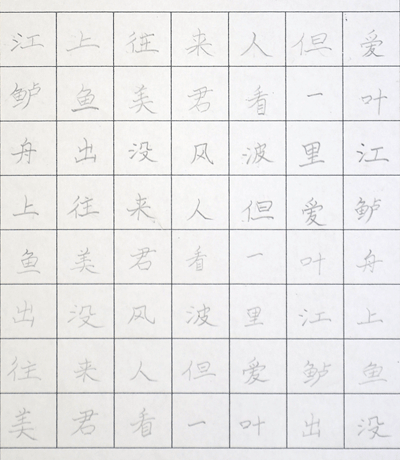 江上往来人但爱
鲈鱼美君看一叶
舟出没风波里江
上往来人但爱鲈
鱼美君看一叶舟
出没风波里江上
往来人但爱鲈鱼
美君看一叶出没